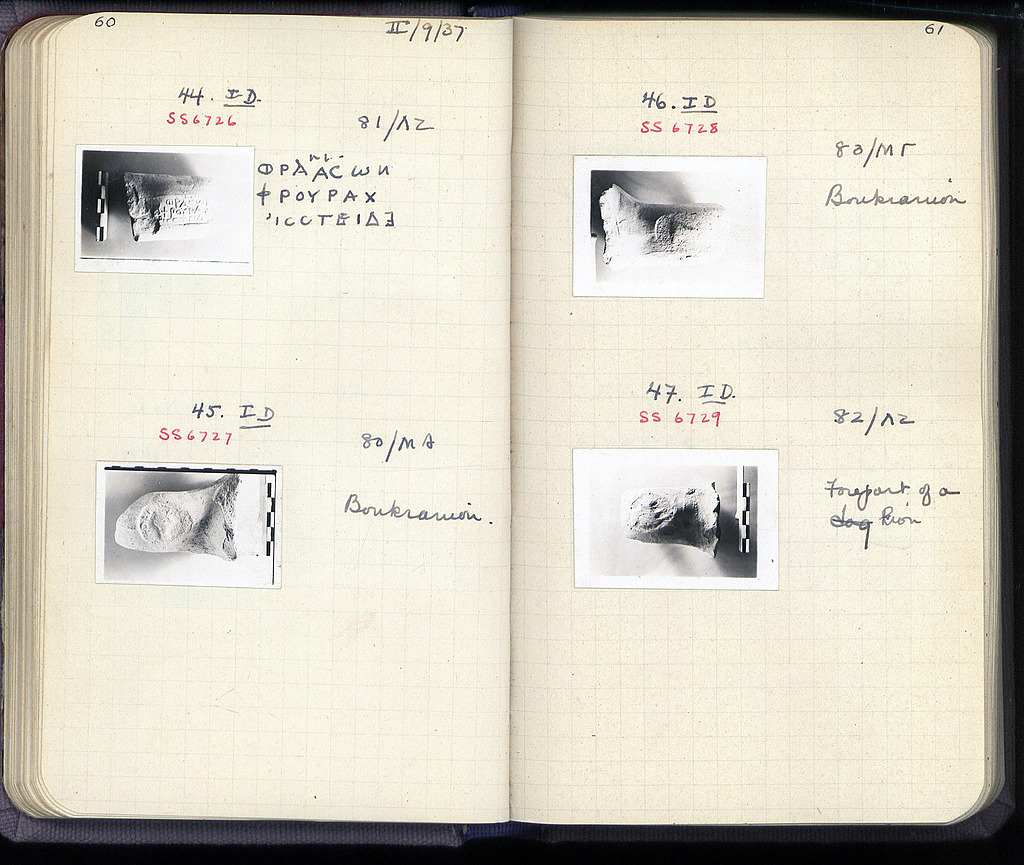 60
II/9/37
44. ID.
SS6726
81/ΛΖ
ΦΡΑΑϹωΝ
ΦΡΟΥΡΑΧ
45. ID
SS6727
80/ΜΑ
Boukranion.
61
46. ID
SS 6728
83/ΜΓ
Boukranion
47. ID.
SS 6729
82/ΛΖ
Forepart of a
dog lion